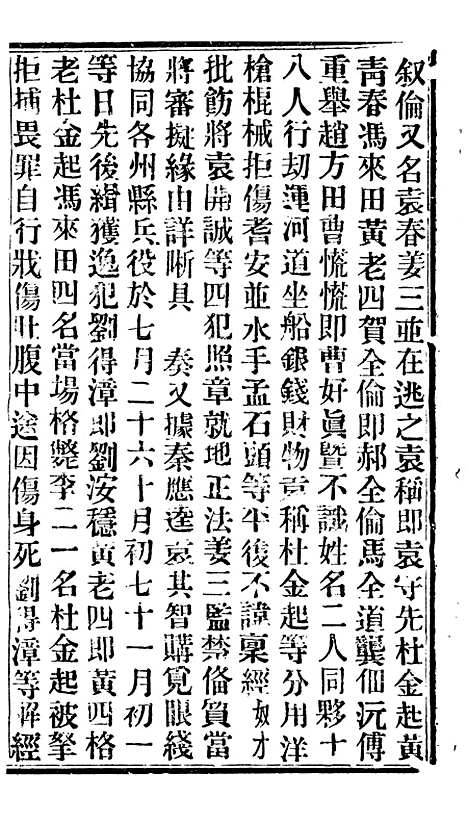 叙倫又名袁春姜三並在逃之袁稱即袁守先杜金起黃
青春馮來田黃老四賀全倫即郝全倫馬全道龔佃沅傅
重舉趙方田曹慌慌即曹好眞暨不識姓名二人同夥十
八人行刧運河道坐船銀錢財物袁稱杜金起等分用洋
槍棍械拒傷耆安並水手孟石頭等平復不諱稟經奴才
批飭將袁開誠等四犯照章就地正法姜三監禁俻質當
將審擬緣由詳晰具 奏又據秦應逵袁其智購覓眼綫
協同各州縣兵役於七月二十六十月初七十一月初一
等日先後緝獲逸犯劉得漳即劉洝穩黃老四即黃四格
老杜金起馮來田四名當場格斃李二一名杜金起被拏
拒捕畏罪自行戕傷肚腹中途因傷身死劉得漳等解經